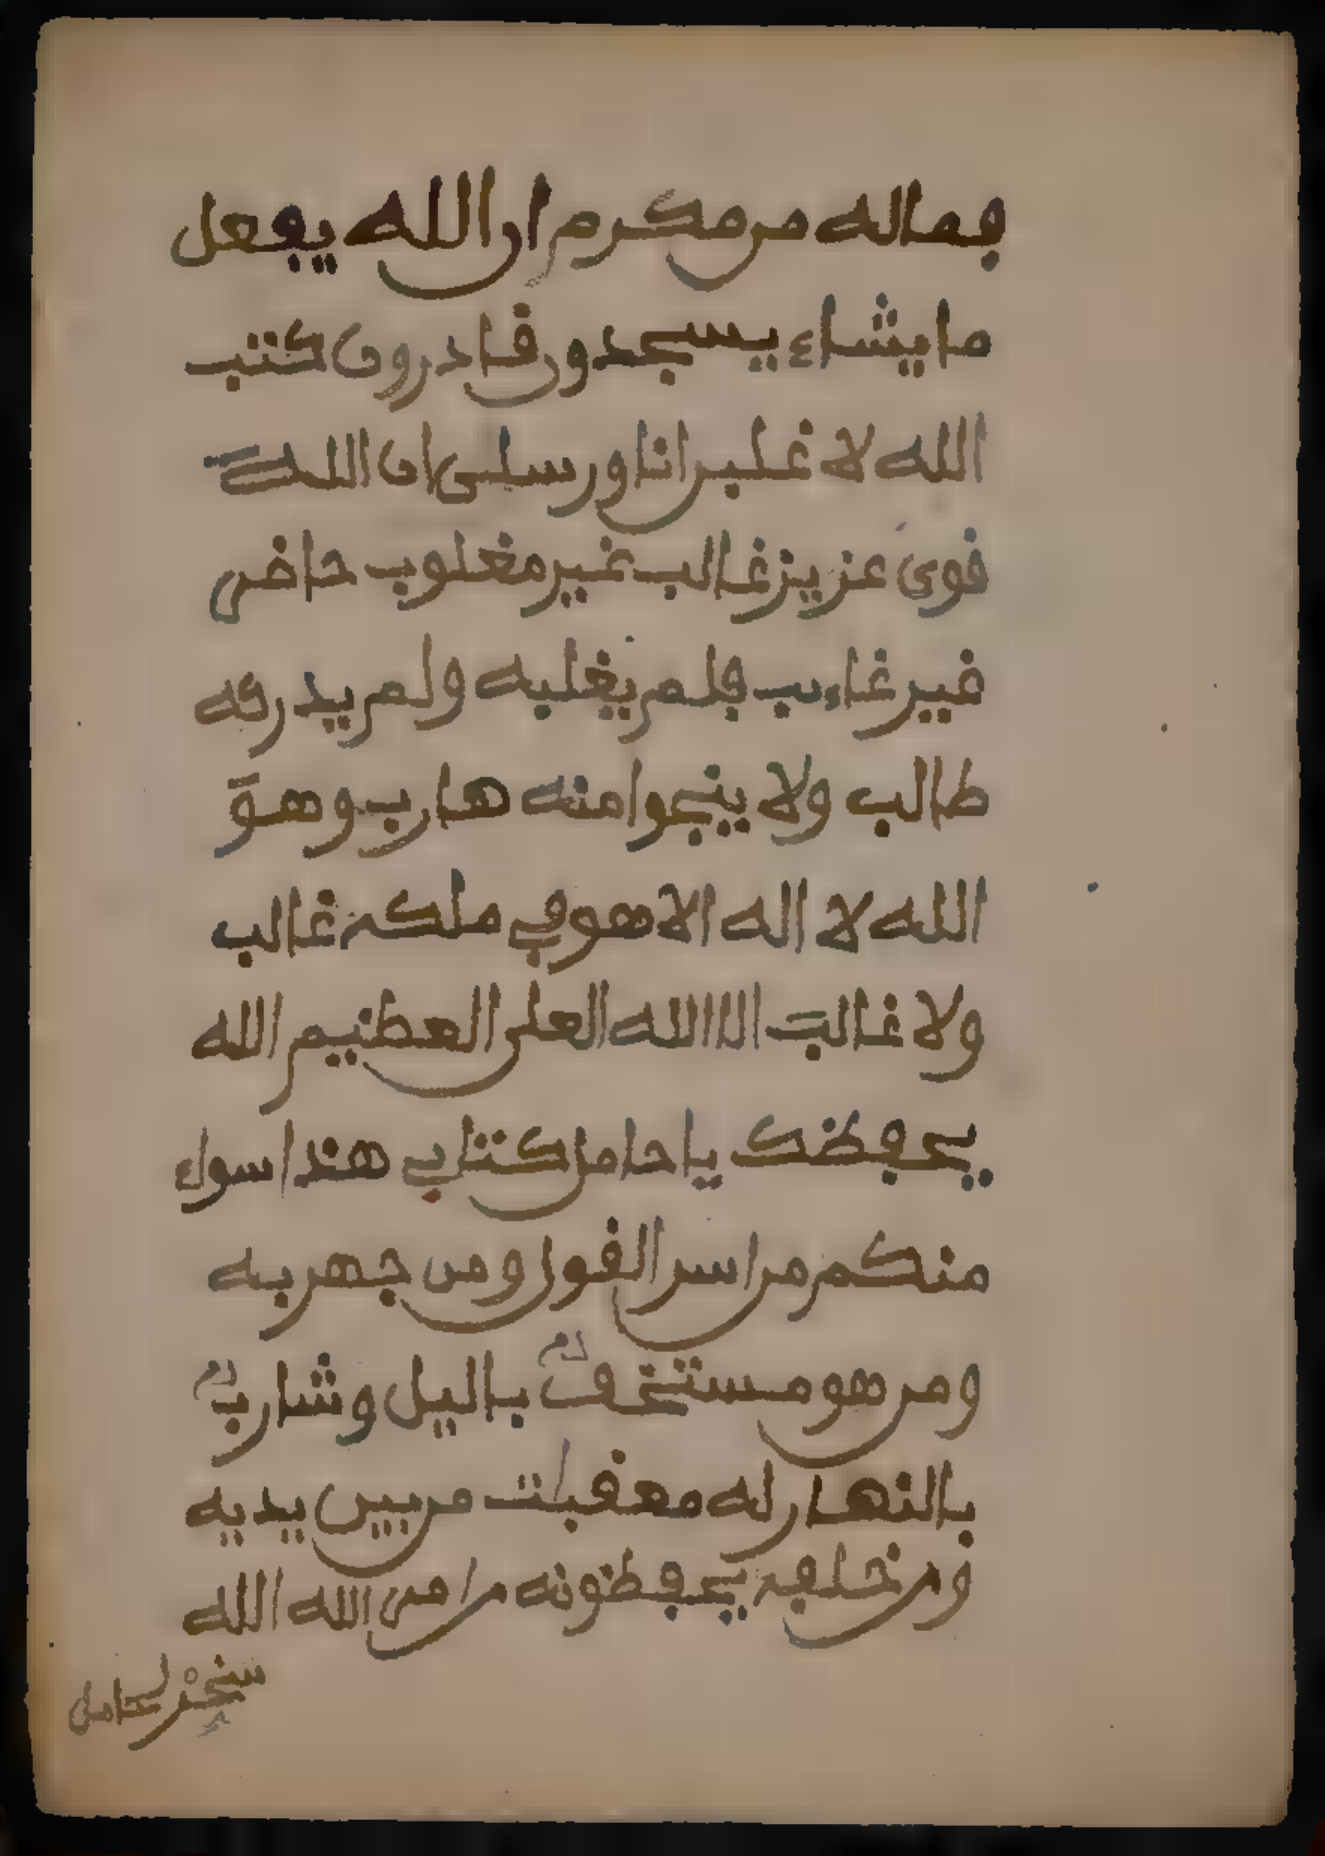 فماله من مكرم ان الله يفعل
ما يشاء يسجدون قادرون كتب
الله لا غلبن انا ورسلى ان الله
قوي عزيز غالب غير مغلوب حاضر
غير غاءب فلم يغلبه ولم يدركه
طالب ولا ينجوا منه هارب وهو
الله لا اله الا هو في ملكه غالب
ولا غالب الا الله العلى العظيم الله
يحفظك يا حامل كتابي هذا سواء
منكم من اسر القول ومن جهر به
ومن هو مستخف باليل وسارب
بالنهار له معقبت من بين يديه
ومن خلفه يحفظونه من امر الله الله
سخر لحامل